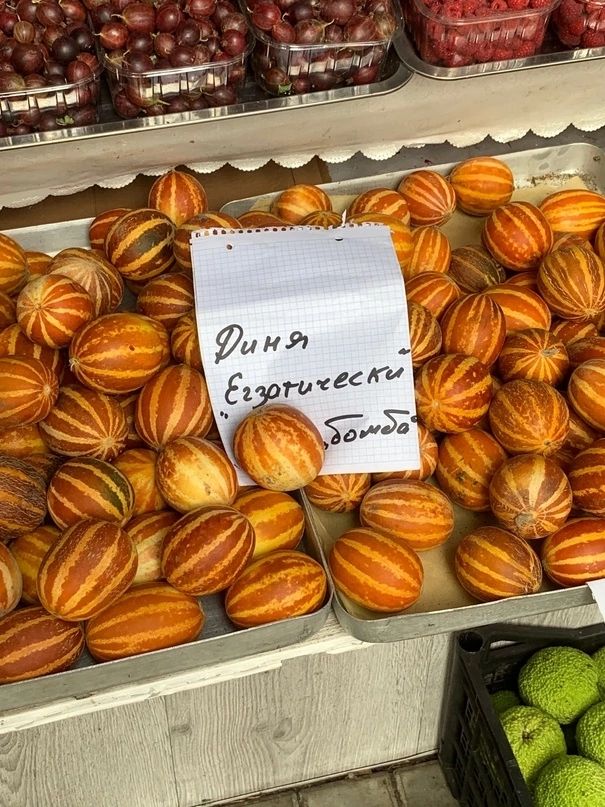 Диня
"Егзотически"
„бомба"